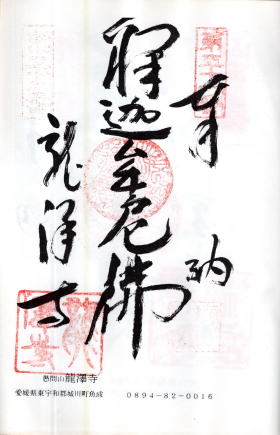 奉納
釋迦牟尼佛
龍澤寺
龍澤寺
愛媛県東宇和郡城川町魚成 0894-82-0016